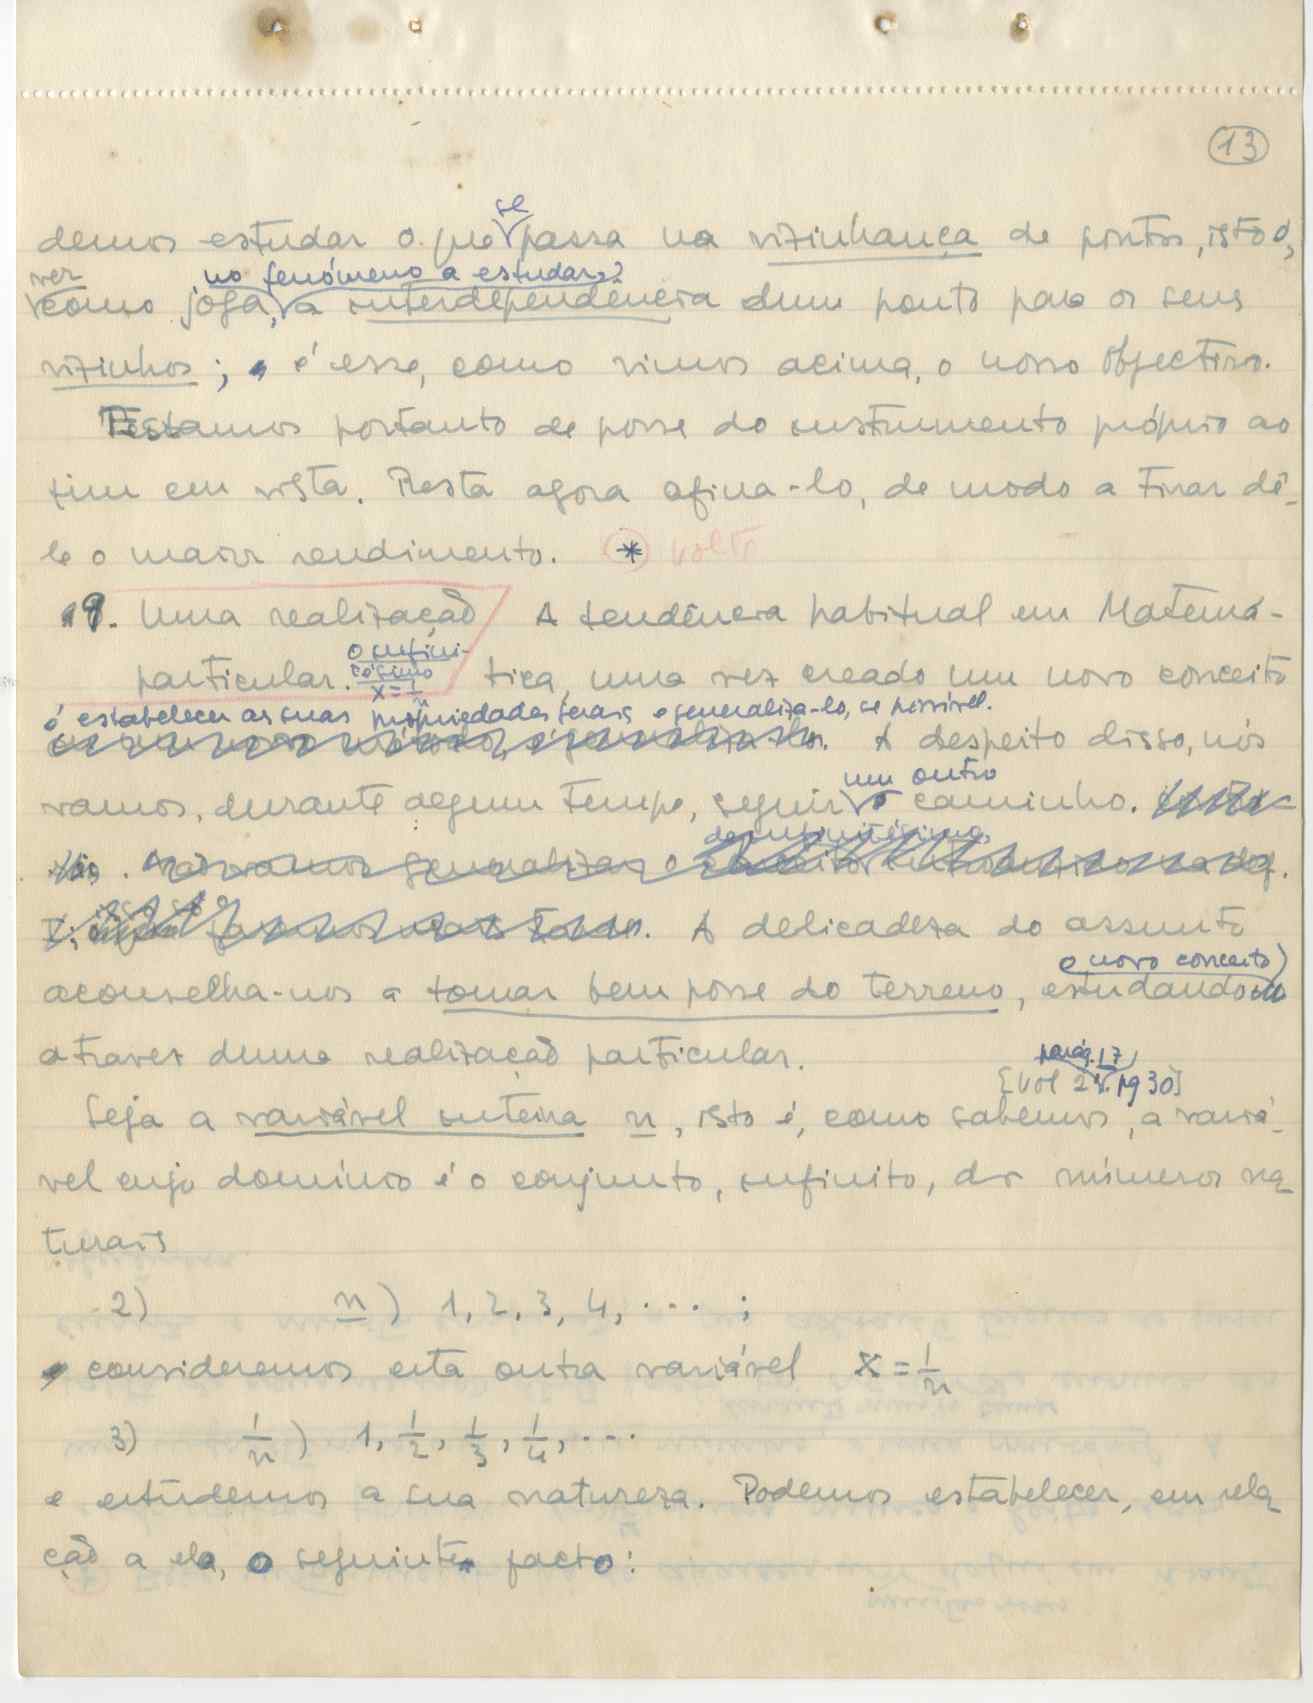 13
se
demos estudar o que passa na vizinhança de pontos, isto é,
ver no fenómeno a estudar,
como joga, a interdependência dum ponto para os seus
vizinhos; é esse, como vimos acima, o nosso objectivo.
Estamos portanto de posse do instrumento próprio ao
fim em vista. Resta agora afina-lo, de modo a tirar dê-
le o maior rendimento. * volte
9. Uma realização A tendência habitual em Matemá-
o infini-
tésimo
particular. x = 1/n tica, uma vez creado um novo conceito
é estabelecer as suas propriedades gerais e generaliza-lo, se possível.
A despeito disso, nós
um outro
vamos, durante algum tempo, seguir caminho.
de infinitésimo
não vamos generalizar o
A delicadeza do assunto
o novo conceito
aconselha-nos a tomar bem posse do terreno, estudando
atravez duma realização particular.
parág. 17
[vol 2º. pg 30]
Seja a variável inteira n, isto é, como sabemos, a variá-
vel cujo domínio é o conjunto, infinito, dos números na
turais
2) n) 1, 2, 3, 4, ... ;
consideremos esta outra variável x = 1/n
3) 1/n) 1, 1/2, 1/3, 1/4, ...
e estudemos a sua natureza. Podemos estabelecer, em rela
ção a ela, o seguinte facto: